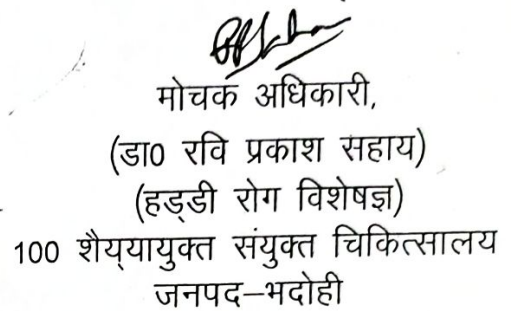 मोचक अधिकारी,
(डा0 रवि प्रकाश सहाय)
(हड्डी रोग विशेषज्ञ)
100 शैय्यायुक्त संयुक्त चिकित्सालय
जनपद–भदोही